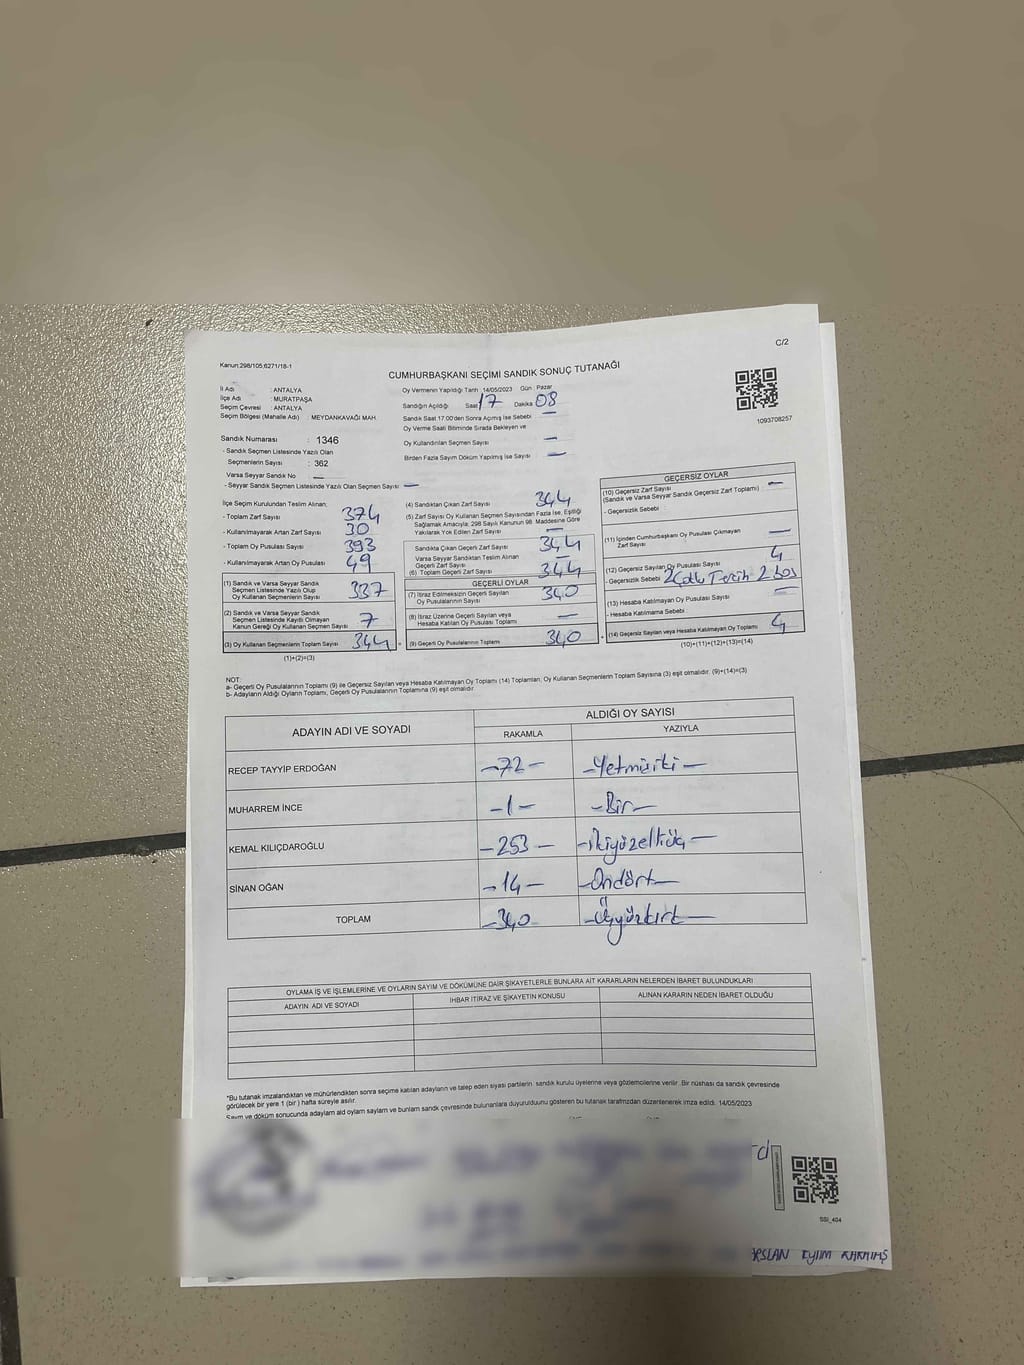 C/2
Kanun:298/105;6271/18-1
CUMHURBAŞKANI SEÇİMİ SANDIK SONUÇ TUTANAĞI
İl Adı : ANTALYA
İlçe Adı : MURATPAŞA
Seçim Çevresi : ANTALYA
Seçim Bölgesi (Mahalle Adı) MEYDANKAVAĞI MAH.
Oy Vermenin Yapıldığı Tarih : 14/05/2023 Gün : Pazar
Sandığın Açıldığı Saat 17 Dakika 08
Sandık Saat 17:00'den Sonra Açılmış İse Sebebi —
Oy Verme Saati Bitiminde Sırada Bekleyen ve
Oy Kullandırılan Seçmen Sayısı —
Birden Fazla Sayım Döküm Yapılmış İse Sayısı —
1093708257
Sandık Numarası : 1346
- Sandık Seçmen Listesinde Yazılı Olan
Seçmenlerin Sayısı : 362
Varsa Seyyar Sandık No —
- Seyyar Sandık Seçmen Listesinde Yazılı Olan Seçmen Sayısı —
İlçe Seçim Kurulundan Teslim Alınan;
- Toplam Zarf Sayısı 374
- Kullanılmayarak Artan Zarf Sayısı 30
- Toplam Oy Pusulası Sayısı 393
- Kullanılmayarak Artan Oy Pusulası 49
(1) Sandık ve Varsa Seyyar Sandık
Seçmen Listesinde Yazılı Olup
Oy Kullanan Seçmenlerin Sayısı 337
(2) Sandık ve Varsa Seyyar Sandık
Seçmen Listesinde Kayıtlı Olmayan
Kanun Gereği Oy Kullanan Seçmen Sayısı 7
(3) Oy Kullanan Seçmenlerin Toplam Sayısı 344
(1)+(2)=(3)
(4) Sandıktan Çıkan Zarf Sayısı 344
(5) Zarf Sayısı Oy Kullanan Seçmen Sayısından Fazla İse, Eşitliği
Sağlamak Amacıyla; 298 Sayılı Kanunun 98. Maddesine Göre
Yakılarak Yok Edilen Zarf Sayısı —
Sandıkta Çıkan Geçerli Zarf Sayısı 344
Varsa Seyyar Sandıktan Teslim Alınan
Geçerli Zarf Sayısı —
(6) Toplam Geçerli Zarf Sayısı 344
GEÇERLİ OYLAR
(7) İtiraz Edilmeksizin Geçerli Sayılan
Oy Pusulalarının Sayısı 340
(8) İtiraz Üzerine Geçerli Sayılan veya
Hesaba Katılan Oy Pusulası Toplamı —
(9) Geçerli Oy Pusulalarının Toplamı 340
GEÇERSİZ OYLAR
(10) Geçersiz Zarf Sayısı
(Sandık ve Varsa Seyyar Sandık Geçersiz Zarf Toplamı) —
- Geçersizlik Sebebi
(11) İçinden Cumhurbaşkanı Oy Pusulası Çıkmayan
Zarf Sayısı —
(12) Geçersiz Sayılan Oy Pusulası Sayısı 4
- Geçersizlik Sebebi 2 Çoklu Tercih 2 boş
(13) Hesaba Katılmayan Oy Pusulası Sayısı —
- Hesaba Katılmama Sebebi
(14) Geçersiz Sayılan veya Hesaba Katılmayan Oy Toplamı 4
(10)+(11)+(12)+(13)=(14)
NOT:
a- Geçerli Oy Pusulalarının Toplamı (9) ile Geçersiz Sayılan veya Hesaba Katılmayan Oy Toplamı (14) Toplamları, Oy Kullanan Seçmenlerin Toplam Sayısına (3) eşit olmalıdır. (9)+(14)=(3)
b- Adayların Aldığı Oyların Toplamı, Geçerli Oy Pusulalarının Toplamına (9) eşit olmalıdır.
ADAYIN ADI VE SOYADI ALDIĞI OY SAYISI
RAKAMLA YAZIYLA
RECEP TAYYİP ERDOĞAN —72— —Yetmişiki—
MUHARREM İNCE —1— —Bir—
KEMAL KILIÇDAROĞLU —253— —İkiyüzelliüç—
SİNAN OĞAN —14— —Ondört—
TOPLAM —340 —Üçyüzkırk—
OYLAMA İŞ VE İŞLEMLERİNE VE OYLARIN SAYIM VE DÖKÜMÜNE DAİR ŞİKAYETLERLE BUNLARA AİT KARARLARIN NELERDEN İBARET BULUNDUKLARI
ADAYIN ADI VE SOYADI İHBAR İTİRAZ VE ŞİKAYETİN KONUSU ALINAN KARARIN NEDEN İBARET OLDUĞU
*Bu tutanak imzalandıktan ve mühürlendikten sonra seçime katılan adayların ve talep eden siyasi partilerin, sandık kurulu üyelerine veya gözlemcilerine verilir. Bir nüshası da sandık çevresinde
görülecek bir yere 1 (bir ) hafta süreyle asılır.
SSI_404
ARSLAN EYLEM KARATAŞ